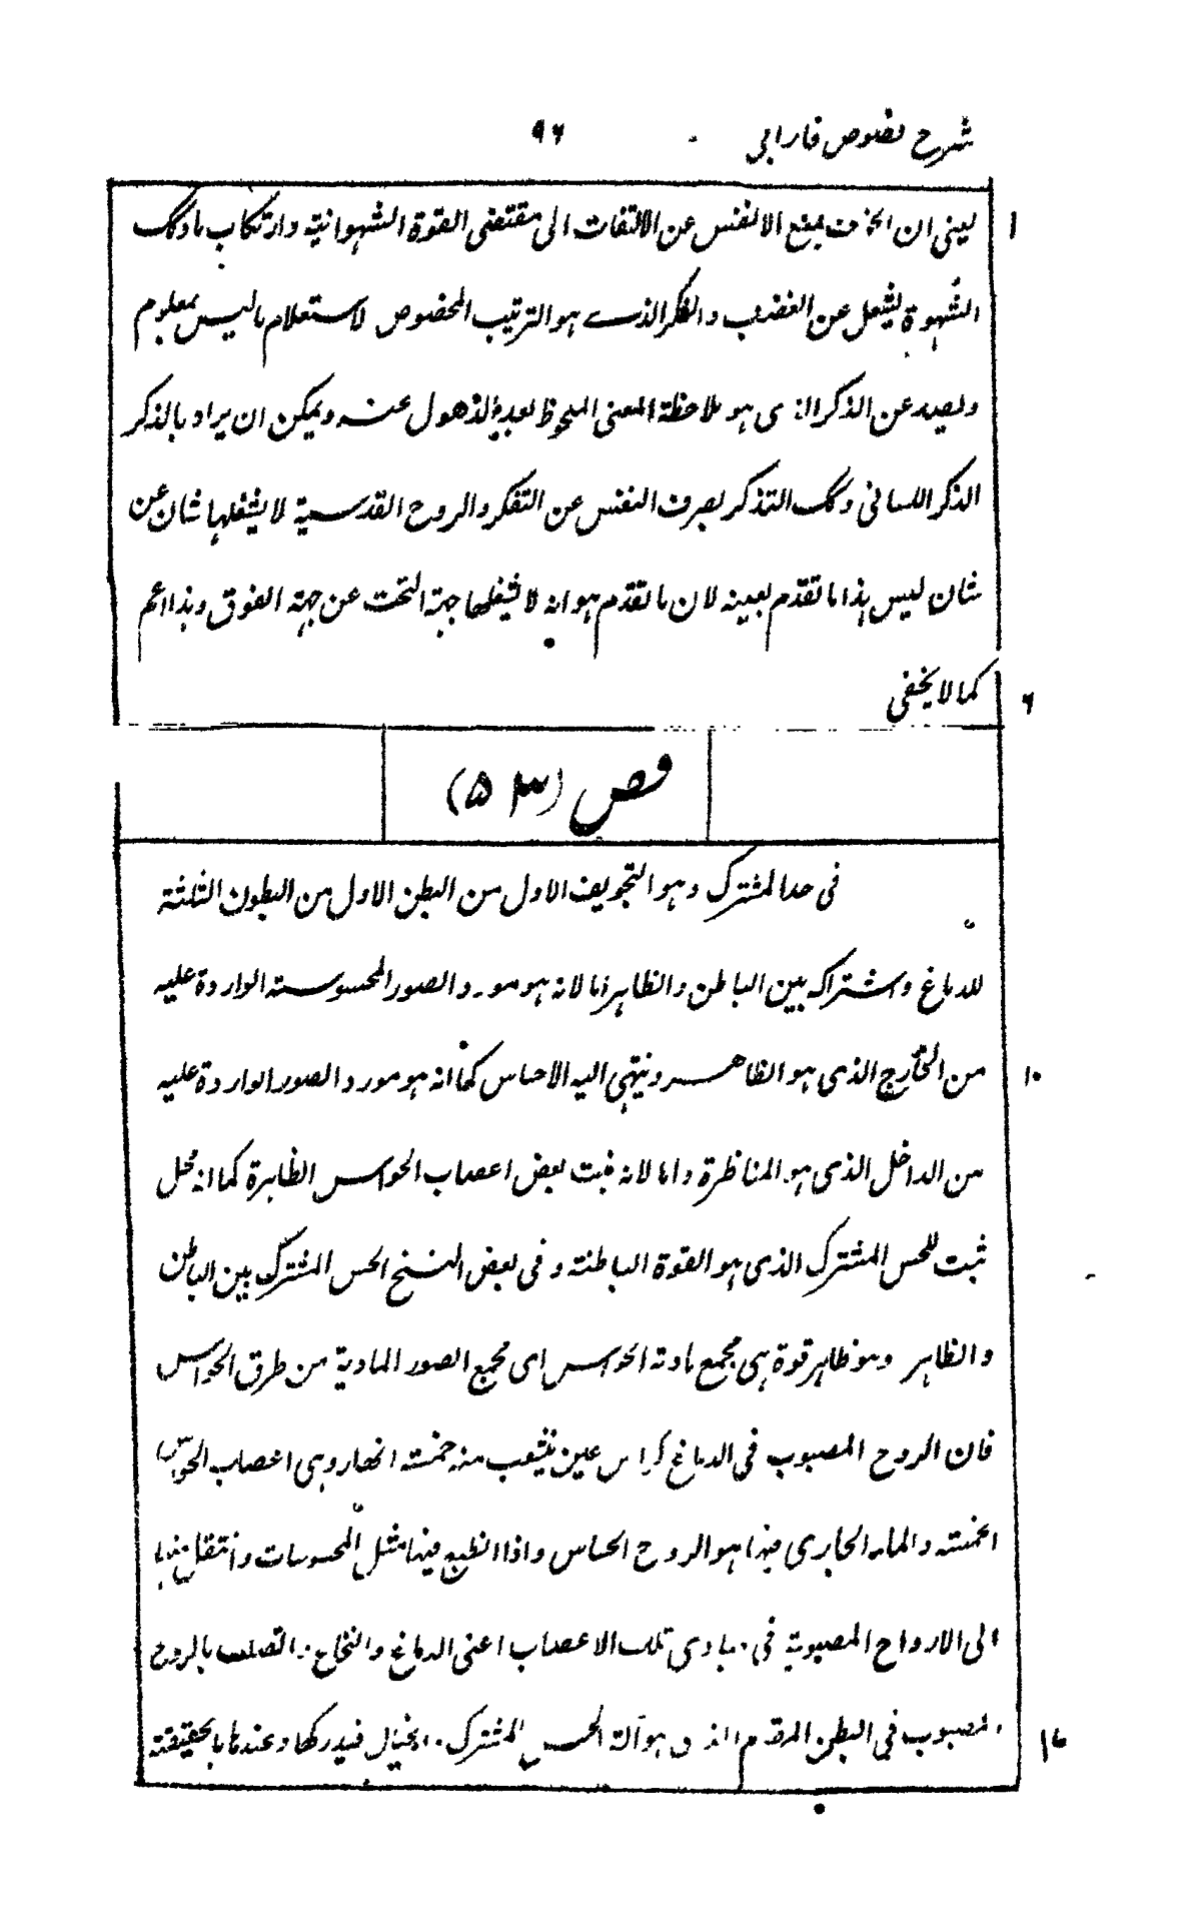 شرح نصوص فارابی ۹۶
۱ یعنی ان الخوف یمنع الانفس عن الالتفات الی مقتضی القوة الشهوانیة وارتکاب مادلک
الشهوة یشغل عن الغضب والفکر الذے هو الترتیب المخصوص لاستعلام مالیس بمعلوم
ویصد عن الذکر الذی هو ملاحظة المعنی الملحوظ بعد الذهول عنه ویمکن ان یراد بالذکر
الذکر اللسانی التذکر یصرف النفس عن التفکر والروح القدسیة لا یشغلها شان عن
شان لیس هذا ما تقدم بعینه لان ما تقدم هو انه لا یشغلها جهة التحت عن جهة الفوق وهذا اعم
کما لا یخفی ۶
فص (۵۳)
فی حد المشترک وهو التجویف الاول من البطن الاول من البطون الثلثة
للدماغ واشتراکه بین الباطن والظاهر اما لانه هو مورد الصور المحسوسة الواردة علیه
من الخارج الذی هو الظاهر وینتهی الیه الاحساس کما انه هو مورد الصور الواردة علیه ۱۰
من الداخل الذی هو المناظرة واما لانه بعض اعصاب الحواس الظاهرة کما انه محل
للحس المشترک الذی هو القوة الباطنة وفی بعض النسخ الحس المشترک بین الباطن
والظاهر وهو ظاهر قوة هی مجمع الحواس ای مجمع الصور المادیة من طرق الحواس
فان الروح المصبوب فی الدماغ کراس عین ینشعب منه خمسة انهار وهی اعصاب الحواس
الخمسة والماء الجاری فیها هو الروح الحساس واذا انطبع فیها مثل المحسوسات وانتقل منها
الی الارواح المصبوبة فی مبادی تلک الاعصاب اعنی الدماغ والنخاع بالروح
المصبوب فی البطن المقدم الذی هو آلة الحس المشترک والخیال فیدرکها وعندها بالحقیقة ۱۷